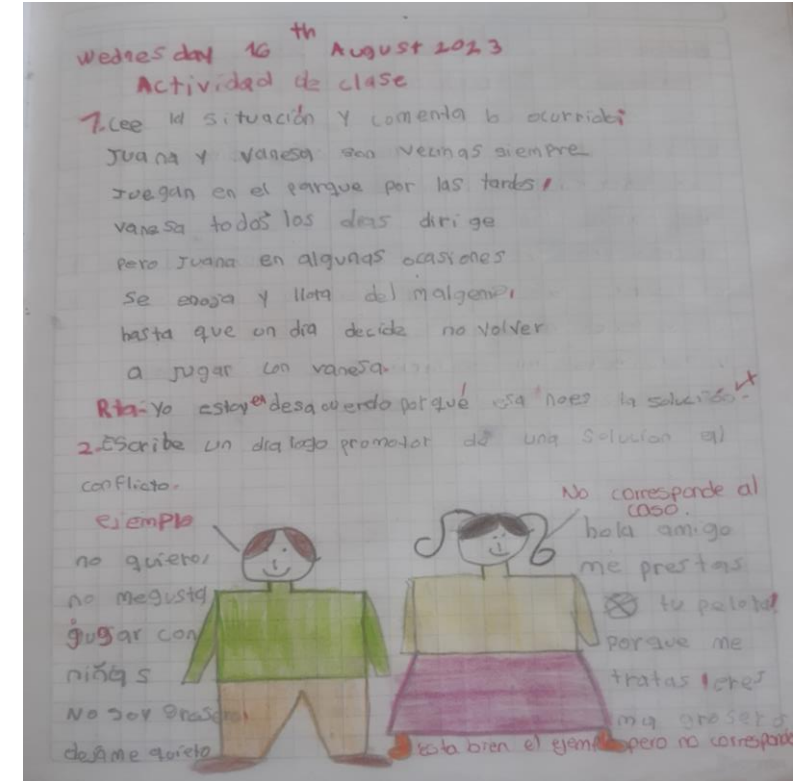 Wednesday 16th August 2023
Actividad de clase
1. Lee la situación y comenta lo ocurrido:
Juana y vanesa son vecinas siempre
Juegan en el parque por las tardes,
vanesa todos los dias dirige
pero Juana en algunas ocasiones
se enoja y llora del malgenio,
hasta que un dia decide no volver
a jugar con vanesa.
Rta- Yo estoy en desacuerdo porqué esa no es la solución.
2. Escribe un dialogo promotor de una solucion al
conflicto.
ejemplo
no quiero,
no megusta
jugar con
niñas
No soy grosero
dejame quieto
No corresponde al
caso.
hola amigo
me prestas
tu pelota
porque me
tratas eres
muy grosero
Esta bien el ejemplo pero no corresponde